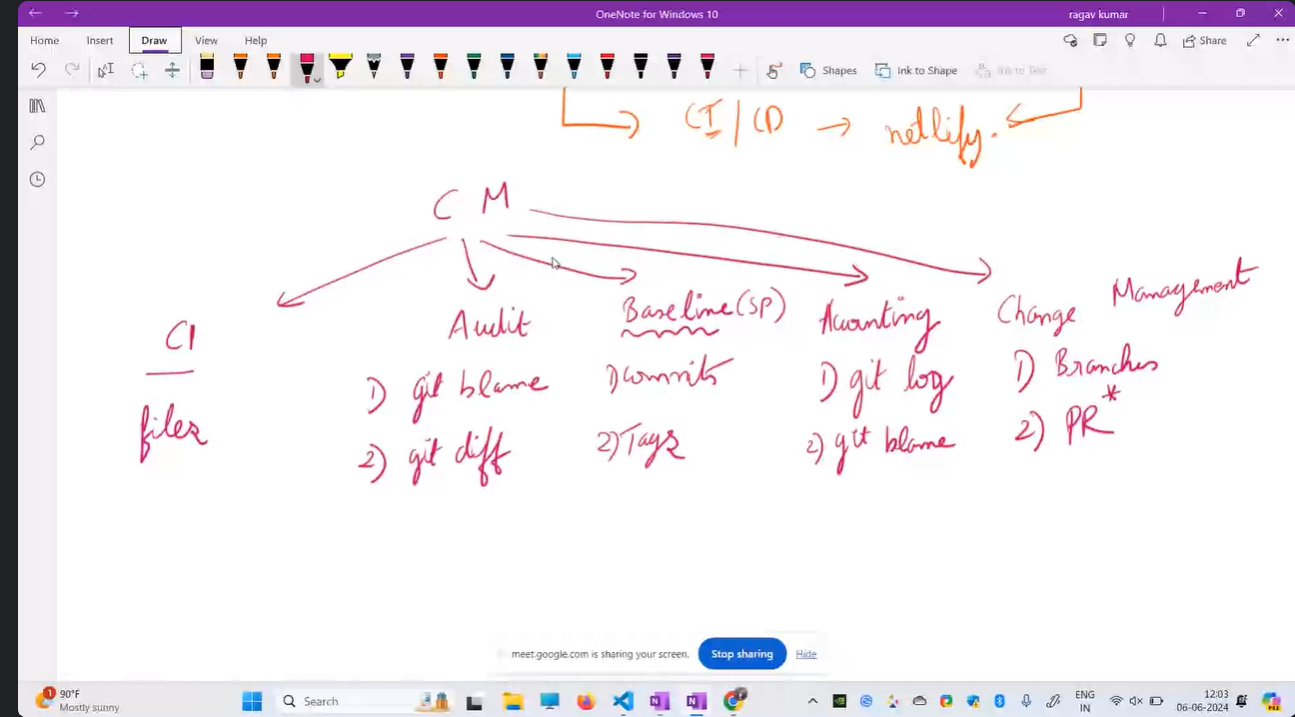 OneNote for Windows 10
ragav kumar
Home Insert Draw View Help
Share
Shapes Ink to Shape Ink to Text
CI/CD → netlify.
C M
CI
files
Audit
1) git blame
2) git diff
Baseline (SP)
1) commits
2) Tags
Accounting
1) git log
2) git blame
Change Management
1) Branches
2) PR*
meet.google.com is sharing your screen. Stop sharing Hide
1
90°F
Mostly sunny
Search
ENG
IN
12:03
06-06-2024